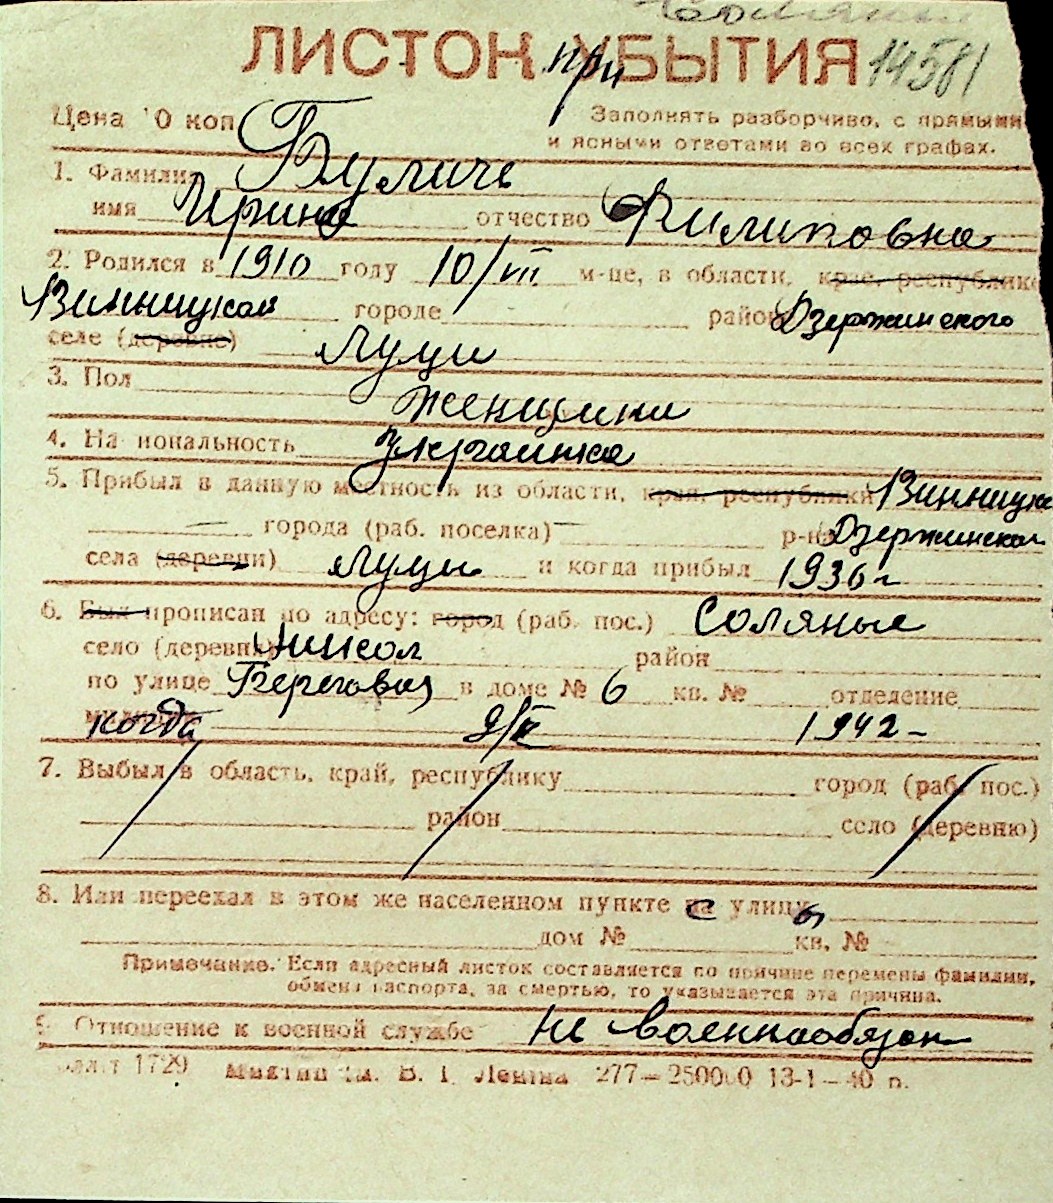 ЛИСТОК при УБЫТИЯ 14581
Цена 10 коп
Заполнять разборчиво, с прямыми
и ясными ответами во всех графах.
1. Фамилия Булич
имя Ирина отчество Филиповна
2. Родился в 1910 году 10/VII м-це, в области, крае, республике
Винницкой городе район Дзержинского
селе (деревне) Луци
3. Пол Женщина
4. Национальность Украинка
5. Прибыл в данную местность из области, края, республики Винницко
города (раб. поселка) р-на Дзержинско
села (деревни) Луци и когда прибыл 1936 г
6. Был прописан по адресу: город (раб. пос.) Соляные
село (деревня) район
по улице Береговая в доме № 6 кв. № отделение
когда 1942
7. Выбыл в область, край, республику город (раб. пос.)
район село (деревню)
8. Или переехал в этом же населенном пункте с улицы
дом № кв. №
Примечание. Если адресный листок составляется по причине перемены фамилии,
обмена паспорта, за смертью, то указывается эта причина.
9. Отношение к военной службе не военнообязан
1729 им. В. І. Леніна 277—250000 13-1—40 р.